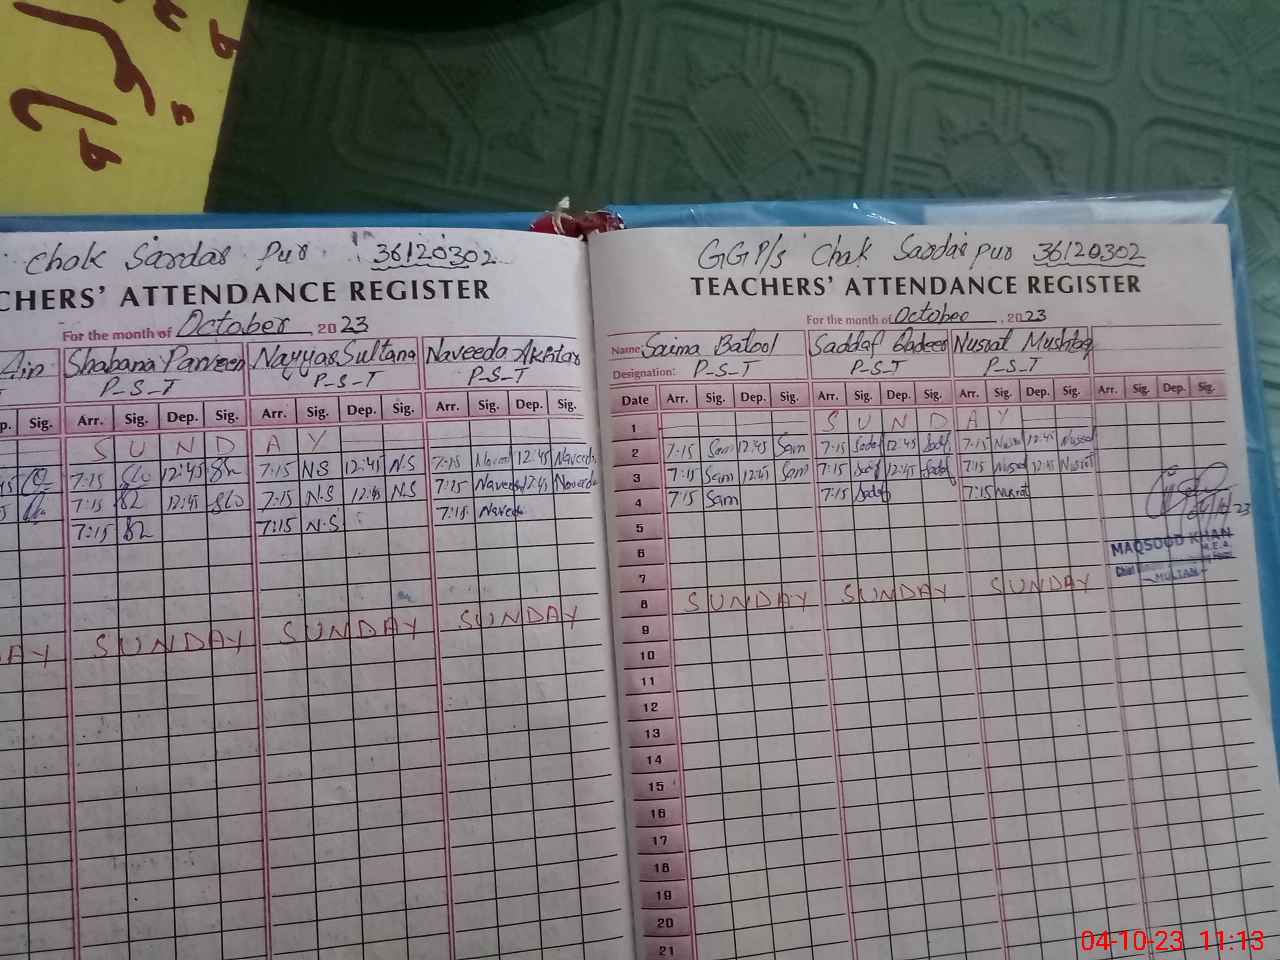 Chak Sardar Pur 36120302
CHERS' ATTENDANCE REGISTER
For the month of October, 2023
Ain Shabana Parveen Nayyar Sultana Naveeda Akhtar
T P-S-T P-S-T P-S-T
p. Sig. Arr. Sig. Dep. Sig. Arr. Sig. Dep. Sig. Arr. Sig. Dep. Sig.
S U N D A Y
7:15 12:45 7:15 N.S 12:45 N.S 7:15 Naveed 12:45 Naveeda
7:15 12:45 7:15 N.S 12:45 N.S 7:15 Naveeda 12:45 Naveeda
7:15 7:15 N.S 7:15 Naveeda
DAY SUNDAY SUNDAY SUNDAY
GGP/s Chak Sardar pur 36120302
TEACHERS' ATTENDANCE REGISTER
For the month of October, 2023
Name Saima Batool Saddaf Qadeer Nusrat Mushtaq
Designation: P-S-T P-S-T P-S-T
Date Arr. Sig. Dep. Sig. Arr. Sig. Dep. Sig. Arr. Sig. Dep. Sig. Arr. Sig. Dep. Sig.
1 S U N D A Y
2 7:15 Sam 12:45 Sam 7:15 Sadaf 12:45 Sadaf 7:15 Nusrat 12:45 Nusrat
3 7:15 Sam 12:45 Sam 7:15 Sadaf 12:45 Sadaf 7:15 Nusrat 12:45 Nusrat
4 7:15 Sam 7:15 Sadaf 7:15 Nusrat
5
6
7
8 SUNDAY SUNDAY SUNDAY
9
10
11
12
13
14
15
16
17
18
19
20
21
MAQSOOD KHAN
M.E.A
MULTAN
04-10-23 11:13